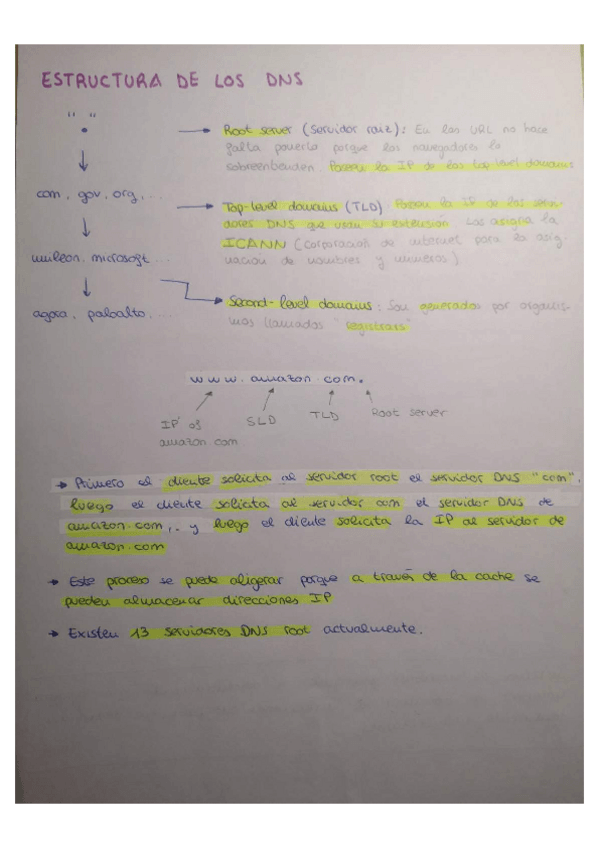 ESTRUCTURA DE LOS DNS
" "
.
→ Root server (Servidor raiz): En las URL no hace
falta ponerla porque los navegadores lo
sobreentienden. Poseen la IP de los top level domains
com, gov, org, ...
→ Top-level domains (TLD): Poseen la IP de los servi-
dores DNS que usan su extensión. Los asigna la
ICANN (corporación de internet para la asig-
nación de nombres y números)
unileon. microsoft ...
→ Second-level domains: Son generados por organis-
mos llamados "registrars"
agora, paloalto, ...
www.amazon.com.
IP of
amazon com
SLD
TLD
Root server
→ Primero el cliente solicita al servidor root el servidor DNS "com",
luego el cliente solicita al servidor com el servidor DNS de
amazon.com, y luego el cliente solicita la IP al servidor de
amazon.com
→ Este proceso se puede aligerar porque a través de la cache se
pueden almacenar direcciones IP
→ Existen 13 servidores DNS root actualmente.